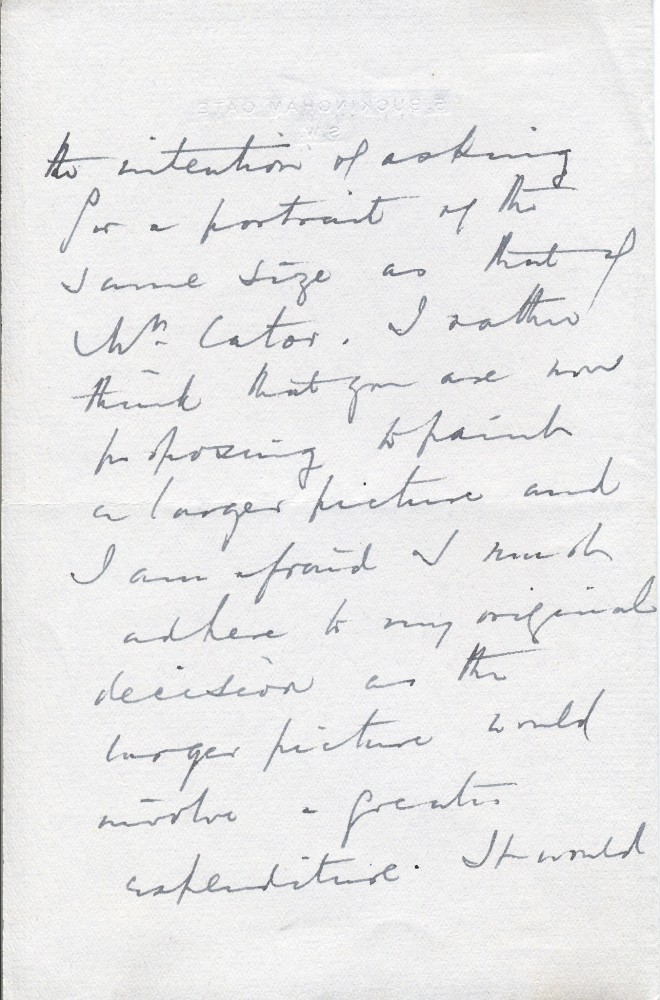 5, BUCKINGHAM GATE
S.W.
the intention of asking
for a portrait of the
same size as that of
Mrs. Cator. I rather
think that you are now
proposing to paint
a larger picture and
I am afraid I must
adhere to my original
decision as the
larger picture would
involve a greater
expenditure. It would